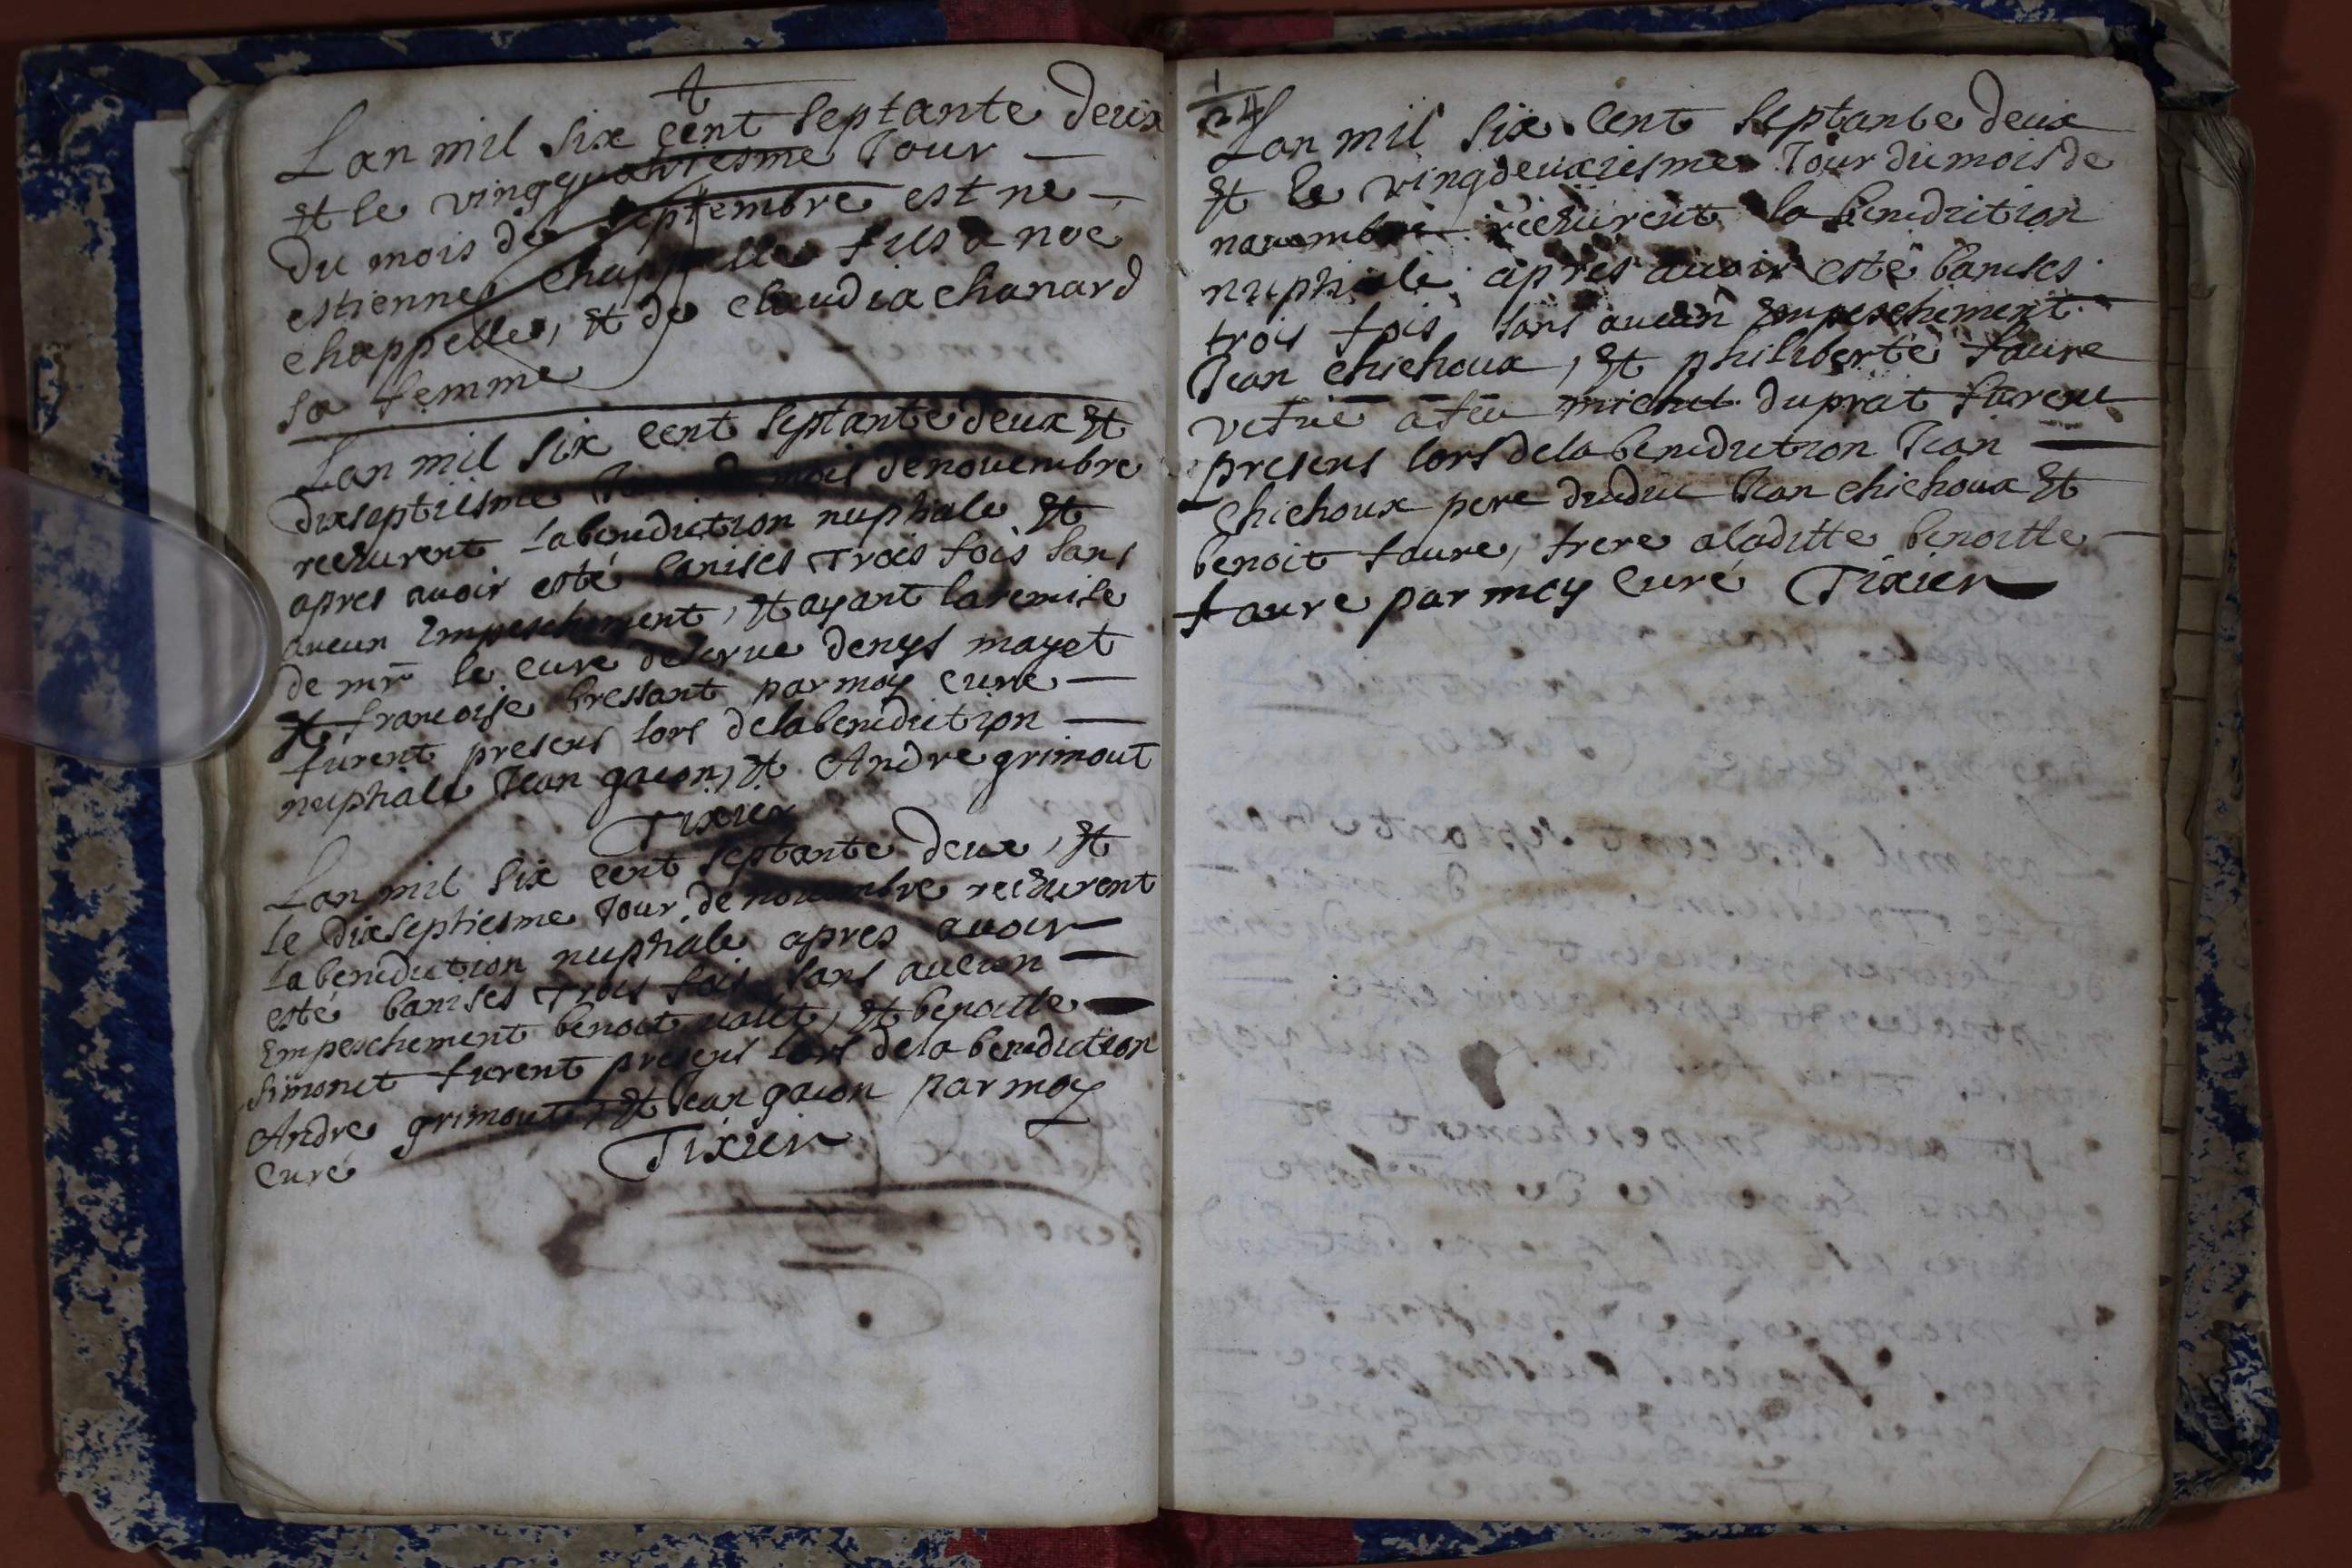 Lan mil six cent septante deux
Et le vingquatriesme Jour
du mois de septembre est ne
estienne chappelle fils a noe
chappelle, Et de claudia chanard
sa femme
Lan mil six cent septante deux Et
dixseptiesme Jour du mois de nouembre
receurent la benediction nuptiale Et
apres auoir esté banises trois fois sans
aucun Empeschement, Et ayant la remise
de mr le curé denys mayet
Et francoise bressant par moy curé
furent presens lors de la benediction
nuptiale Jean gacon, Et Andre grimout
Tixier
Lan mil six cent septante deux, Et
le dixseptiesme Jour de nouembre receurent
la benediction nuptiale apres auoir
esté banises trois fois sans aucun
Empeschement benoit valet, Et benoitte
simonet furent presens lors de la benediction
Andre grimout, Et Jean gacon par moy
Curé Tixier
24
Lan mil six cent septante deux
Et le vingdeuxiesme Jour du mois de
nouembre receurent la benediction
nuptiale apres auoir esté banises
trois fois sans aucun Empeschement
Jean chichoux, Et philiberte faure
vefue a feu michel duprat furent
presens lors de la benediction Jean
Chichoux pere dudit Jean chichoux Et
benoit faure, frere a laditte benoitte
faure par moy Curé Tixier